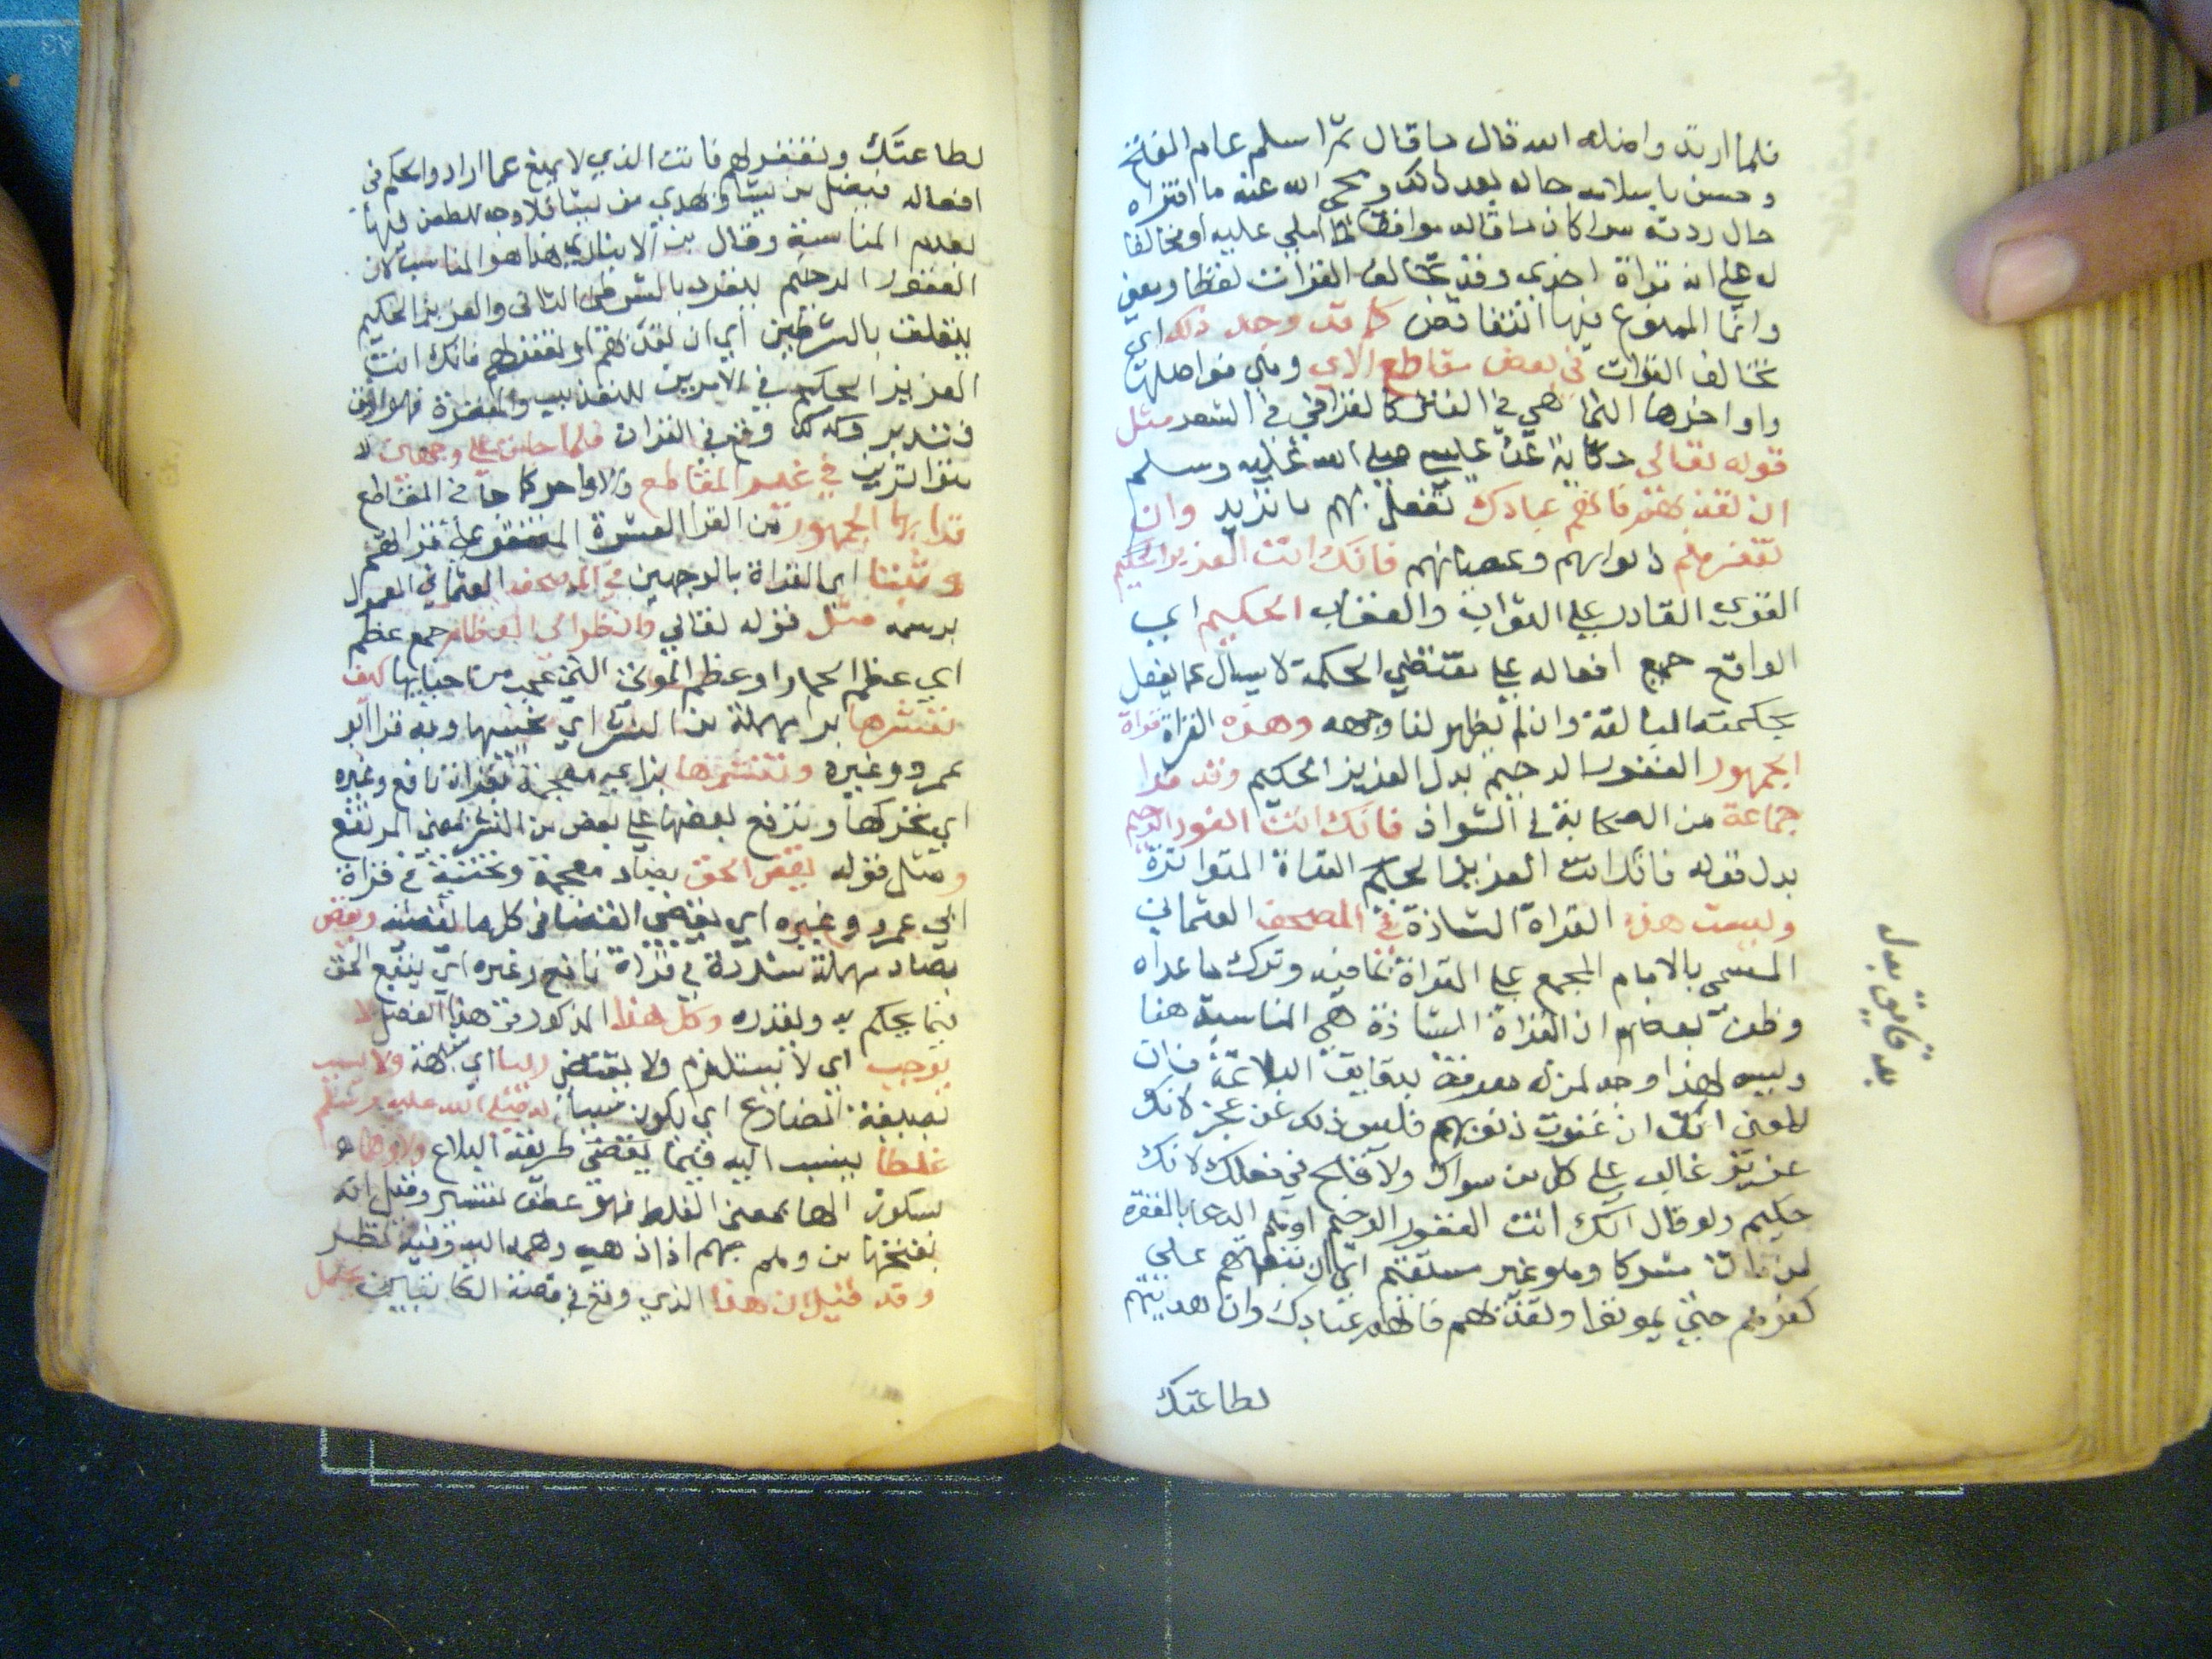 فلما ارتد واضله الله قال ما قال ثم اسلم عام الفتح
وحسن باسلامه حاله بعد ذلك ومحى الله عنه ما افتراه
حال ردته سوا كان ما قاله موافقا لما املي عليه او مخالفا
له على انه قراة اخرى وقد تخالف القرات لفظا ومعنى
وانما الممنوع فيها التناقض كما قد وجد ذلك اي
تخالف القرات في بعض مقاطع الاي وهي فواصلها
واواخرها التي هي في النثر كالقوافي في الشعر مثل
قوله تعالى حكاية عن عيسى صلى الله عليه وسلم
ان تعذبهم فانهم عبادك تفعل بهم ما تريد وان
تغفر لهم ذنوبهم وعصيانهم فانك انت العزيز الحكيم
القوي القادر على الثواب والعقاب الحكيم اي
الواقع جميع افعاله على مقتضى الحكمة لا يسال عما يفعل
بحكمته البالغة وان لم يظهر لنا وجهه وهذه القراة قراة
الجمهور الغفور الرحيم بدل العزيز الحكيم وقد قرا
جماعة من الصحابة في الشواذ فانك انت الغفور الرحيم
بدل قوله فانك انت العزيز الحكيم القراة المتواترة
وليست هذه القراة الشاذة في المصحف العثماني
المسمى بالامام المجمع على القراة بما فيه وترك ما عداه
وظن بعضهم ان القراة الشاذة هي المناسبة هنا
وليس لهذا وجه لمن له معرفة بدقايق البلاغة فان
المعنى انك ان غفرت ذنوبهم فليس ذلك عن عجز لانك
عزيز غالب على كل من سواك ولا قبح في فعلك لانك
حكيم ولو قال انك انت الغفور الرحيم اوهم الدعا بالمغفرة
لمن مات مشركا وهو غير مستقيم اي ان تبقهم على
كفرهم حتى يموتوا وتعذبهم فانهم عبادك وان هديتهم
لطاعتك
لطاعتك وتغفر لهم فانت الذي لا يمنع عما اراد والحكيم في
افعاله فيضل من يشا ويهدي من يشا فلا وجه للطعن فيها
بعدم المناسبة وقال بن الانباري هذا هو المناسب لان
الغفور الرحيم ينفرد بالشرط الثاني والعزيز الحكيم
يتعلق بالشرطين اي ان تعذبهم او تغفر لهم فانك انت
العزيز الحكيم في الامرين للتعذيب والمغفرة فهو اوفق
فتدبر وكذلك وقع في القران كلمات على وجهين لا
متواترين في غير المقاطع والاواخر كما جا في المقاطع
قرا بها الجمهور من القرا العشرة المتفق على قراتهم
وثبتتا اي القراة بالوجهين في المصحف العثماني المعمول
برسمه مثل قوله تعالى وانظر الى العظام جمع عظم
اي عظم الحمار او عظم الموتى التي عجب من احيايها كيف
ننشرها برا مهملة من النشر اي نحييها وبه قرا ابو
عمرو وغيره وننشزها بزاي معجمة قراة نافع وغيره
اي نحركها ونرفع بعضها على بعض من النشز بمعنى المرتفع
ومثل قوله يقض الحق بضاد معجمة وتحتية في قراة
ابي عمرو وغيره اي يقضي القضا في كل ما يقضيه ويقص
بصاد مهملة مشددة في قراة نافع وغيره اي يتبع الحق
فيما يحكم به ويقدره وكل هذا المذكور في هذا الفصل لا
يوجب اي لا يستلزم ولا يقتضي ريبا اي شبهة ولا يسبب
بصيغة المضارع اي يكون سببا له صلى الله عليه وسلم
غلطا ينسب اليه فيما يقتضي طريقه البلاغ ولا وهما
بسكون الها بمعنى الغلط فهو عطف تفسير وقيل انه
بفتحها من وهم يهم اذا ذهب وهمه اليه وفيه نظر
وقد قيل ان هذا الذي وقع في قصة الكاتبين يحتمل